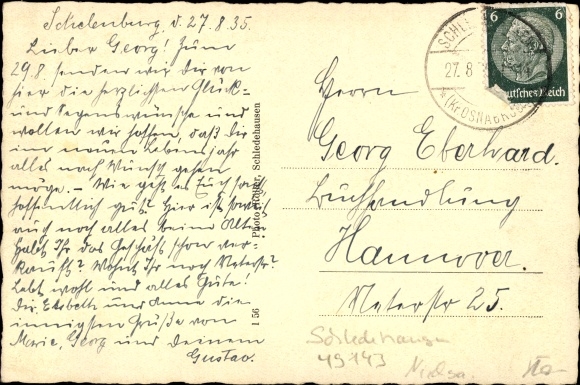 Schelenburg, d. 27.8.35.
Lieber Georg! Zum
29.8. senden wir Dir von
hier die herzlichsten Glück-
und Segenswünsche und
wollen wir hoffen, daß Dir
im neuen Lebensjahr
alles nach Wunsch gehen
möge. – Wie geht es Euch sonst
hoffentlich gut? Hier ist soweit
auch noch alles beim Alten
Habt Ihr das Geschäft schon ver-
kauft? Wohnt Ihr noch Neterstr?
Lebt wohl und alles Gute!
Dir, Elsbeth und Anna die
innigsten Grüße von
Marie, Georg und Deinem
Gustav.
Photo Rötger, Schledehausen
I 56
6 6
Deutsches Reich
27.8
(Kr. OSNABRÜCK)
Herrn
Georg Eberhard.
Buchhandlung
Hannover.
Neterstr 25.
Schledehausen
49143